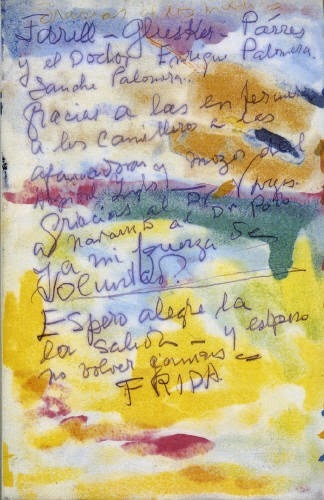 Farill - Glusker - Párres
y el Doctor Enrique Palomera.
Sanchez Palomera.
Gracias a las enfermeras
a los camilleros a las
afanadoras y mozos del
Gracias al Dr
a Navarro al Dr Polo
y a mi fuerza de
Voluntad.
Espero alegre la
la salida - y espero
no volver jamás -
FRIDA